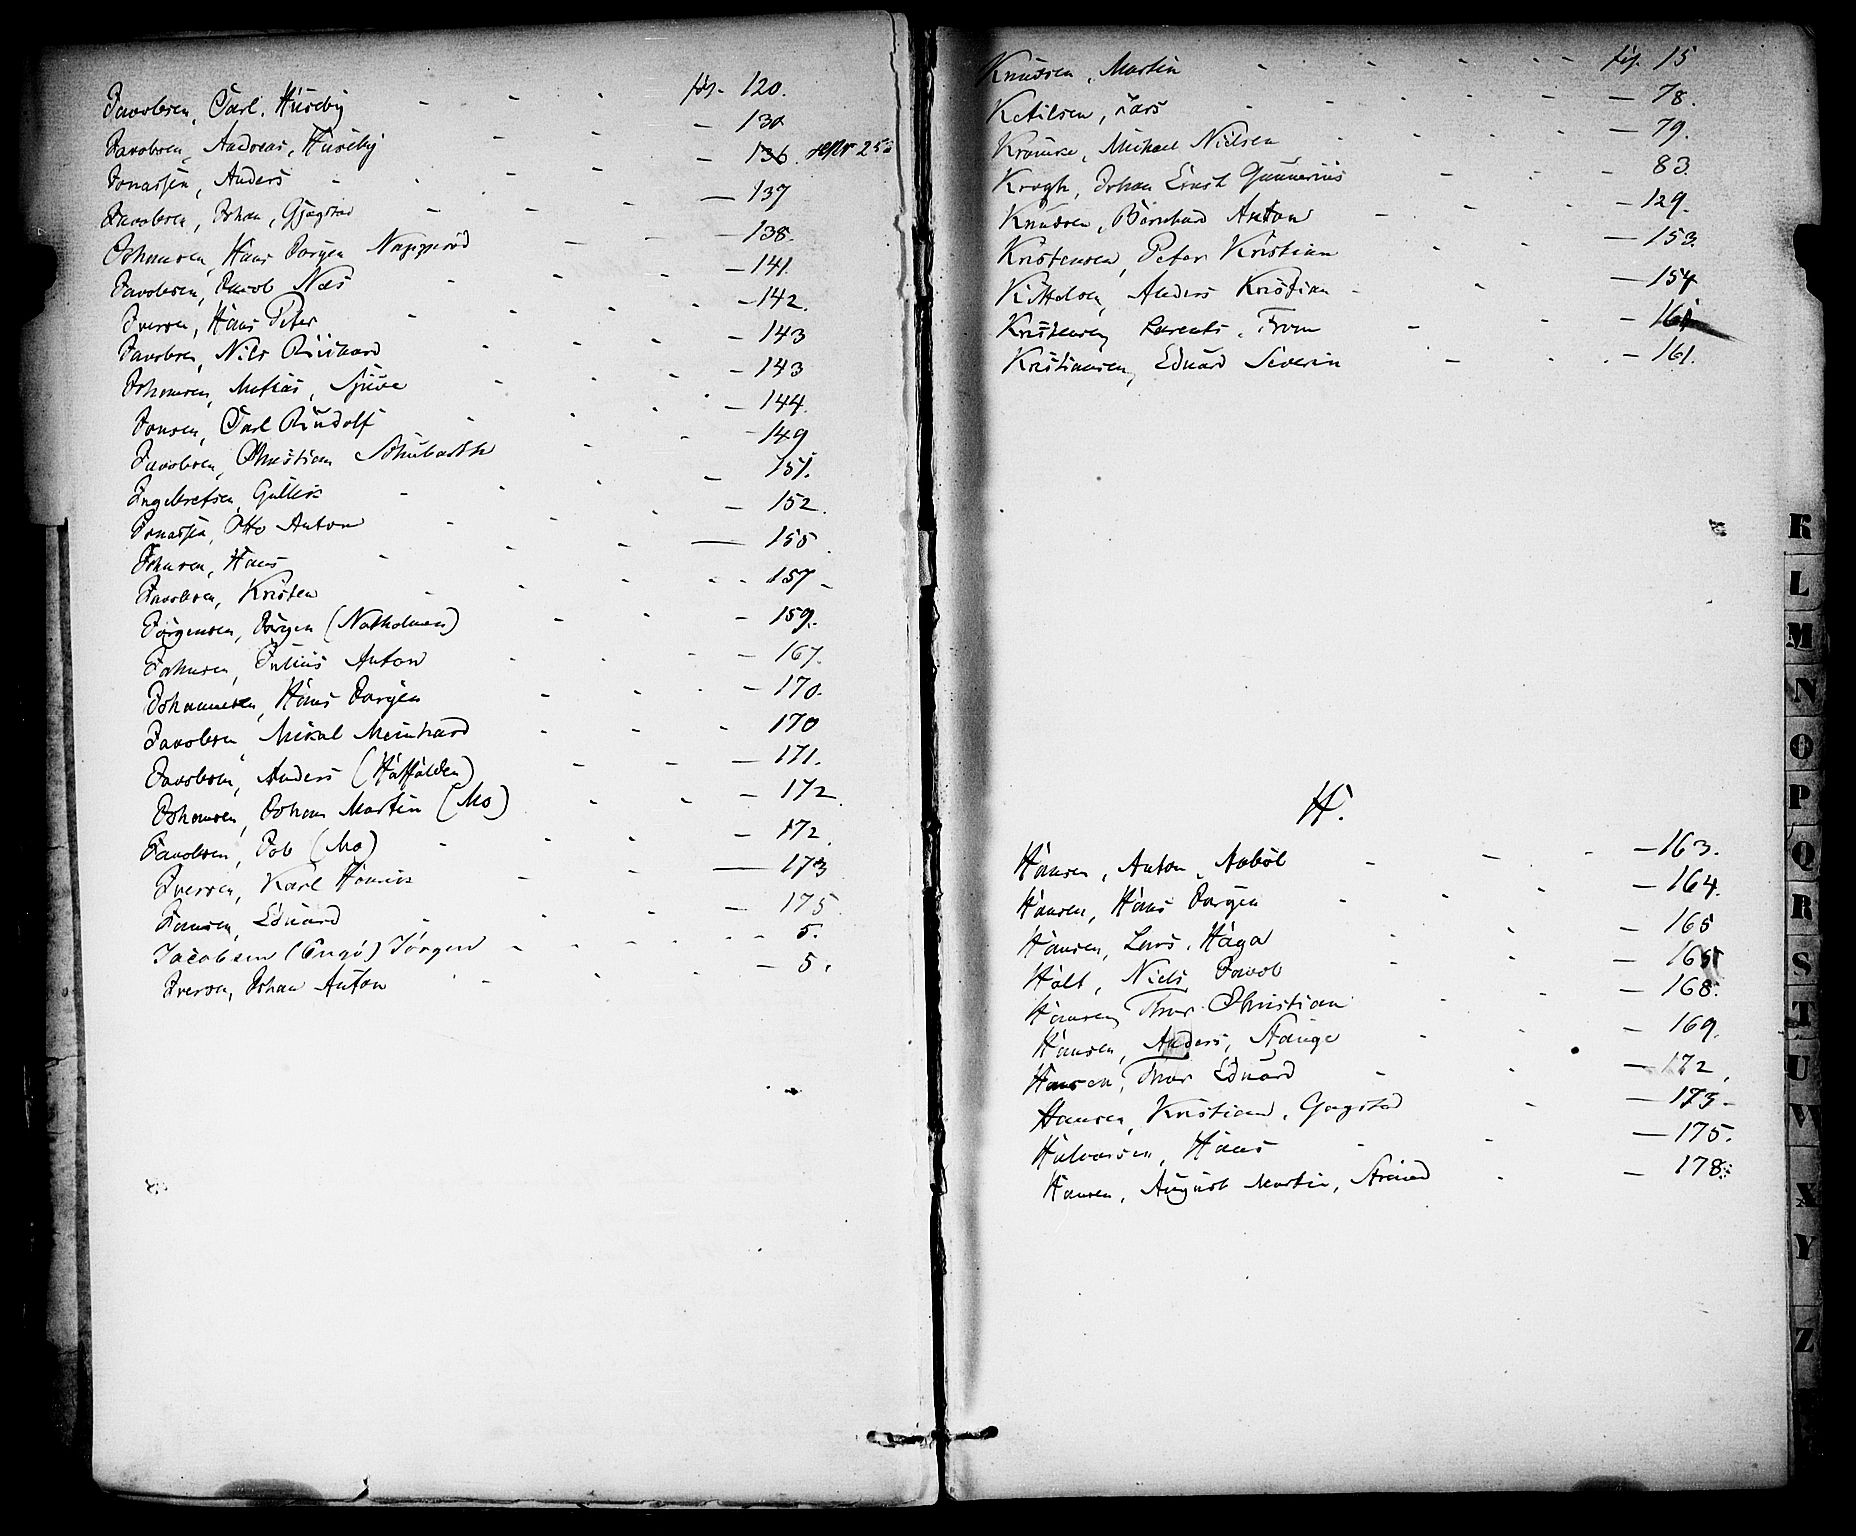 Jacobsen, Carl. Huseby - - - pg. 120.
Jacobsen, Andreas, Huseby - - - 130
Jonassen, Anders - - - 136. 25
Jacobsen, Johan, Gjøgstad - - - 137
Johansen, Hans Jørgen Napperød - - - 138.
Jacobsen, Jacob Næs - - - 141.
Iversen, Hans Peter - - - 142.
Jacobsen, Nils Richard - - - 143
Johansen, Matias, Sjüve - - - 143
Jensen, Carl Rudolf - - - 144.
Jacobsen, Christian Schubarth - - 149
Ingebretsen, Gullik - - - 151.
Jonassen, Otto Anton - - - 152.
Johnsen, Hans - - - 155.
Jacobsen, Kristen - - - 157
Jørgensen, Jørgen (Natholmen) - - - 159.
Johnsen, Julius Anton - - - 167.
Johannesen, Hans Jørgen - - - 170.
Jacobsen, Mikal Meinhard - - - 170
Jacobsen, Anders (Hafallden) - - - 171.
Johansen, Johan Martin (Mo) - - - 172.
Jacobsen, Job (Mo) - - - 172.
Iversen, Karl Henrik - - - 173
Jansen, Eduard - - - 175.
Jacobsen (Engø) Jørgen - - - 5.
Iversen, Johan Anton - - - 5.
Knudsen, Martin - - - pg. 15
Ketilsen, Lars - - - 78.
Kramke, Michael Nielsen - - - 79.
Krogh, Johan Ernst Gunnerius - - - 83.
Knudsen, Bernhard Anton - - - 129.
Kristensen, Peter Kristian - - - 153.
Kittelsen, Anders Kristian - - - 154
Kristensen, Larents. From - - - 161
Kristiansen, Eduard Severin - - - 161.
H.
Hansen, Anton, Aabøl - - - 163.
Hansen, Hans Jørgen - - - 164.
Hansen, Lars, Haga - - - 165
Holt, Niels Jacob - - - 165
Hansen, Thor Christian - - - 168.
Hansen, Anders, Stange - - - 169.
Hansen, Thor Eduard - - - 172,
Hansen, Kristian, Gogstad - - - 173.
Halvorsen, Hans - - - 175.
Hansen, August Martin, - - 178.
K
L
M
N
O
P
Q
R
S
T
U
V
X
Y
Z